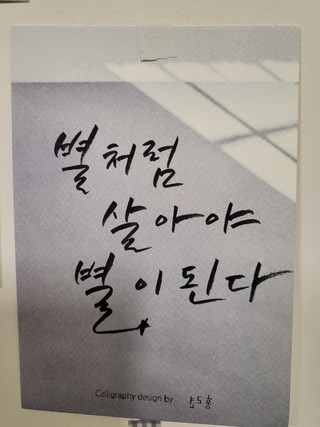 별처럼
살아야
별이된다
Calligraphy design by